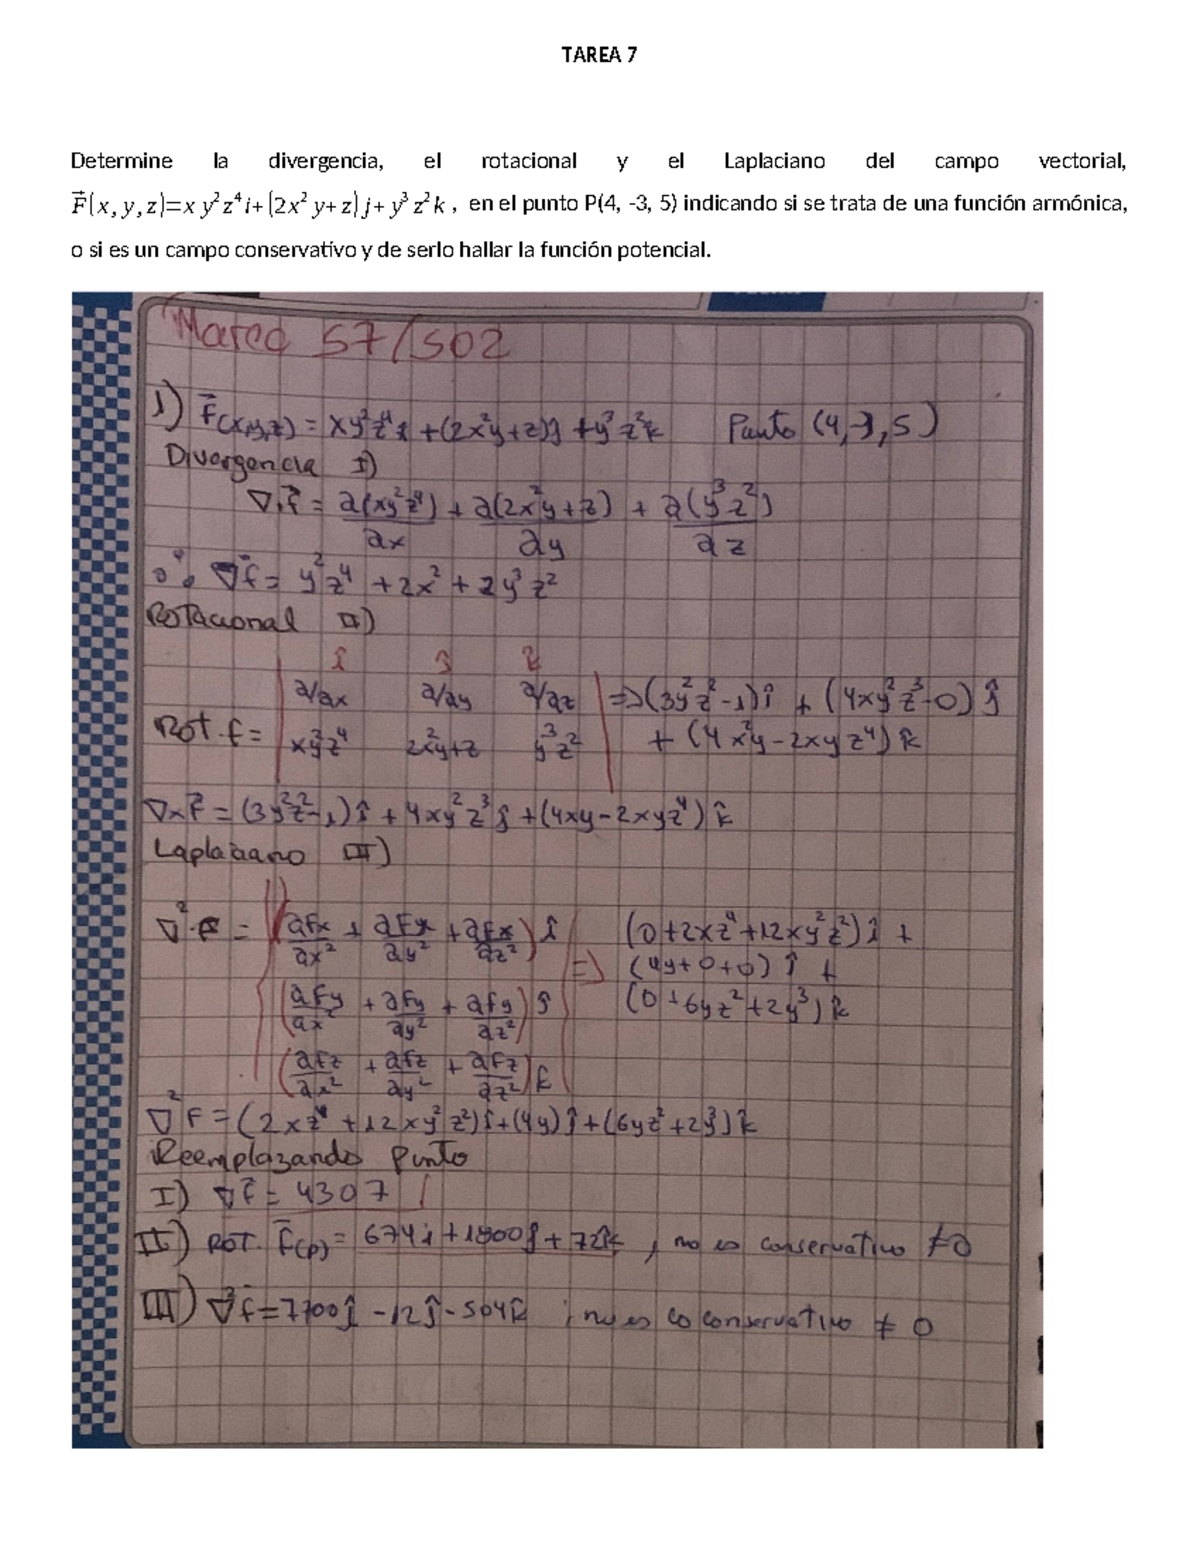 TAREA 7
Determine la divergencia, el rotacional y el Laplaciano del campo vectorial,
F⃗(x,y,z)=x y²z⁴i+(2x²y+z)j+y³z²k, en el punto P(4, -3, 5) indicando si se trata de una función armónica,
o si es un campo conservativo y de serlo hallar la función potencial.
S7/S02
1) F⃗(x,y,z) = xy²z⁴i +(2x²y+z)j +y³z²k Punto (4,-3,5)
Divergencia I)
∇.F⃗ = ∂(xy²z⁴)/∂x + ∂(2x²y+z)/∂y + ∂(y³z²)/∂z
∇f = y²z⁴ + 2x² + 2y³z²
Rotacional II)
i j k
∂/∂x ∂/∂y ∂/∂z => (3y²z²-1)i + (4xy²z³-0)j
Rot.f = xy²z⁴ 2x²y+z y³z² + (4x²y-2xyz⁴)k
∇xF⃗ = (3y²z²-1)i + 4xy²z³j +(4xy-2xyz⁴)k
Laplaciano III)
∇²F = (∂Fx/∂x² + ∂Fx/∂y² + ∂Fx/∂z²)i => (0+2xz⁴+12xy²z²)i +
(4y+0+0)j +
(∂Fy/∂x² + ∂Fy/∂y² + ∂Fy/∂z²)j (0+6yz²+2y³)k
(∂Fz/∂x² + ∂Fz/∂y² + ∂Fz/∂z²)k
∇²F = (2xz⁴ +12xy²z²)i+(4y)j+(6yz²+2y³)k
Reemplazando Punto
I) ∇f = 4307
II) ROT. F(p) = 674i+1800j+72k, no es conservativo ≠0
III) ∇²f=7700j -12j-504k ; no es co conservativo ≠ 0